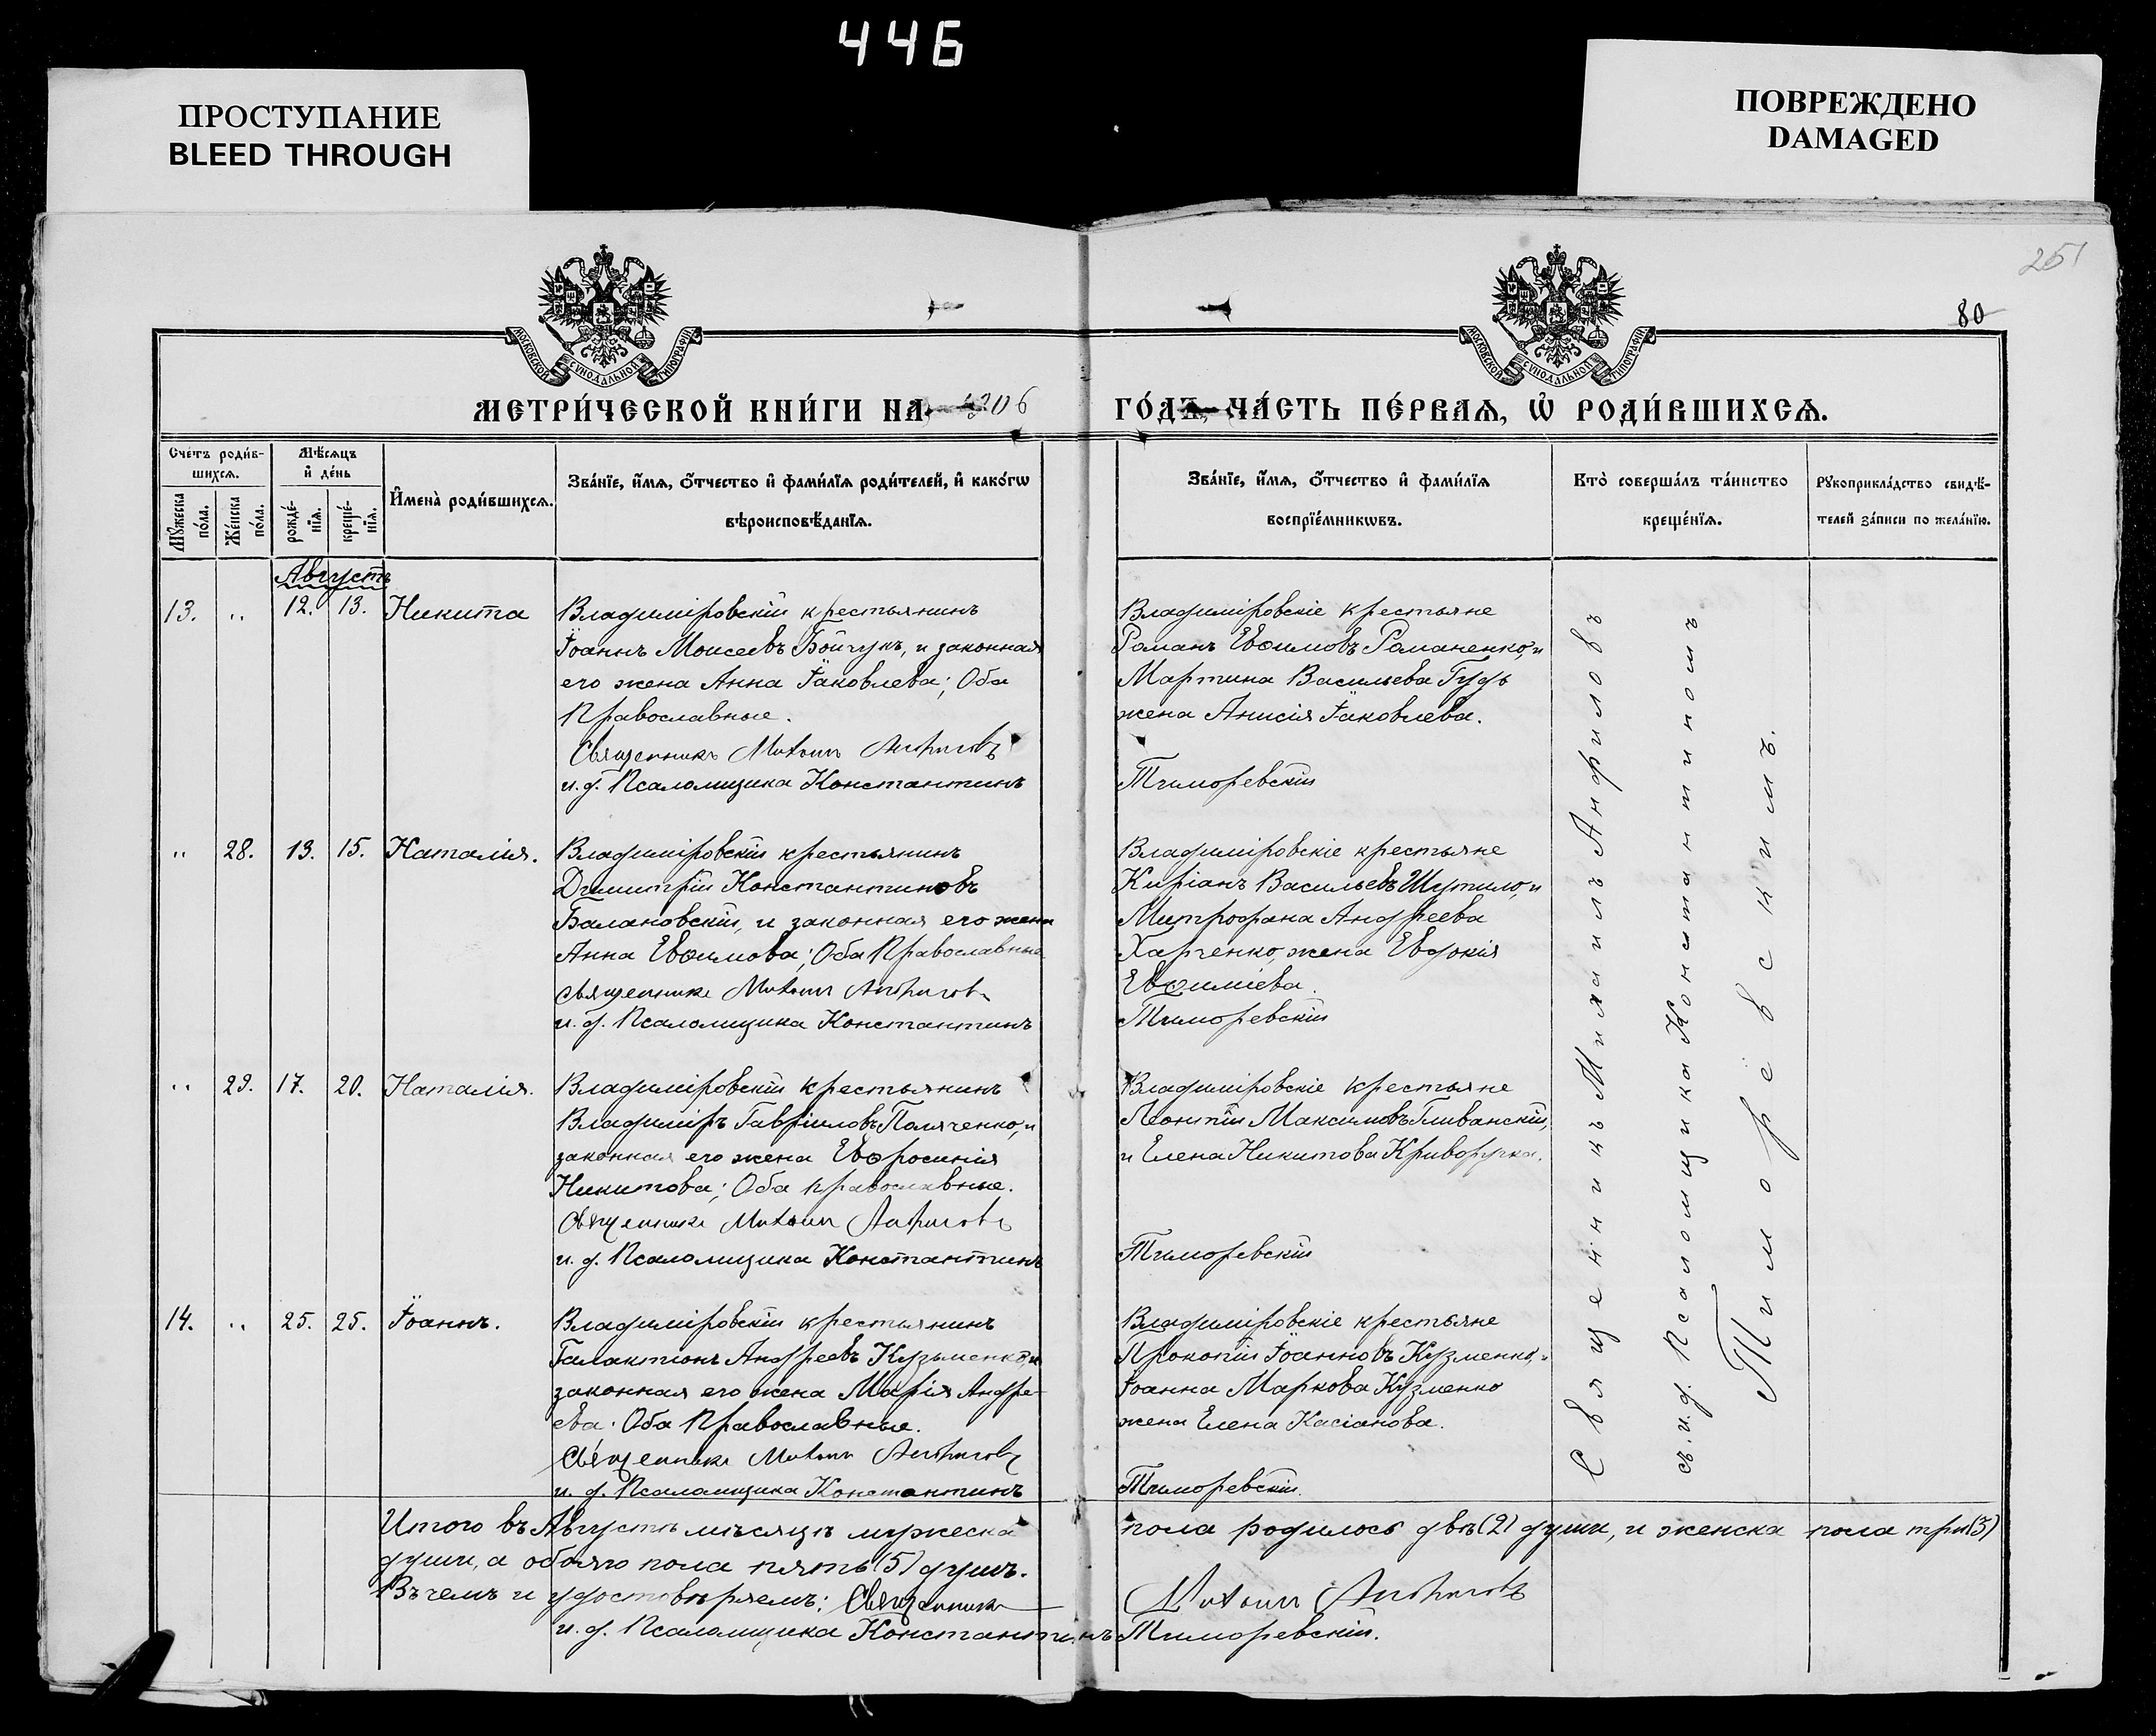 446
ПРОСТУПАНИЕ
BLEED THROUGH
ПОВРЕЖДЕНО
DAMAGED
251
80
МОСКОВСКОЙ СУНОДАЛЬНОЙ ТИПОГРАФІИ
МОСКОВСКОЙ СУНОДАЛЬНОЙ ТИПОГРАФІИ
МЕТРИ́ЧЕСКОЙ КНИ́ГИ НА 1906 ГО́ДЪ, ЧА́СТЬ ПЕ́РВАЯ, Ѡ҆ РОДИ́ВШИХСѦ.
Сче́тъ роди́в-
шихсѧ.
Мꙋ́жеска по́ла.
Же́нска по́ла.
Мѣ́сяцъ
и҆ де́нь
рожде́-
нїѧ.
креще́-
нїѧ.
И҆мена̀ роди́вшихсѧ.
Зва́нїе, и҆́мѧ, ѻ҆́тчество и҆ фами́лїѧ роди́телей, и҆ како́гѡ
вѣроисповѣ́данїѧ.
Зва́нїе, и҆́мѧ, ѻ҆́тчество и҆ фами́лїѧ
воспрїе́мникѡвъ.
Кто̀ соверша́лъ та́инство
креще́нїѧ.
Рꙋкоприкла́дство свидѣ́-
телей за́писи по жела́нїю.
Августъ
13. „ 12. 13. Никита
Владиміровскій крестьянинъ
Іоаннъ Моисеевъ Бойчукъ, и законная
его жена Анна Іаковлева; Оба
Православные.
Священникъ Михаилъ Анфиловъ
и. д. Псаломщика Константинъ
Владиміровскіе крестьяне
Романъ Евѳимовъ Романенко, и
Мартина Васильева Гудь
жена Анисія Іаковлева.
Тиморевскій
„ 28. 13. 15. Наталія.
Владиміровскій крестьянинъ
Димитрій Константиновъ
Балановскій, и законная его жена
Анна Евѳимова; Оба Православные
Священникъ Михаилъ Анфиловъ
и. д. Псаломщика Константинъ
Владиміровскіе крестьяне
Киріанъ Васильевъ Шутило, и
Митрофана Андреева
Харченко, жена Евдокія
Евѳиміева.
Тиморевскій
„ 29. 17. 20. Наталія.
Владиміровскій крестьянинъ
Владиміръ Гавріиловъ Поляченко, и
законная его жена Евфросинія
Никитова; Оба православные.
Священникъ Михаилъ Анфиловъ
и. д. Псаломщика Константинъ
Владиміровскіе крестьяне
Леонтій Максимовъ Гливанскій,
и Елена Никитова Криворучка.
Тиморевскій
14. „ 25. 25. Іоаннъ.
Владиміровскій крестьянинъ
Галактіонъ Андреевъ Кузьменко, и
законная его жена Марія Андре-
ева. Оба Православные.
Священникъ Михаилъ Анфиловъ
и. д. Псаломщика Константинъ
Владиміровскіе крестьяне
Прокопій Іоанновъ Кузменко, и
Іоанна Маркова Кузменко
жена Елена Касіанова.
Тиморевскій.
Священникъ Михаилъ Анфиловъ
съ и.д. Псаломщика Константиномъ
Тиморевскимъ.
Итого въ Августѣ мѣсяцѣ мужеска пола родилось двѣ (2) души, и женска пола три (3)
души, а обоего пола пять (5) душъ.
Въ чемъ и удостовѣряемъ: Священникъ Михаилъ Анфиловъ
и. д. Псаломщика Константинъ Тиморевскій.